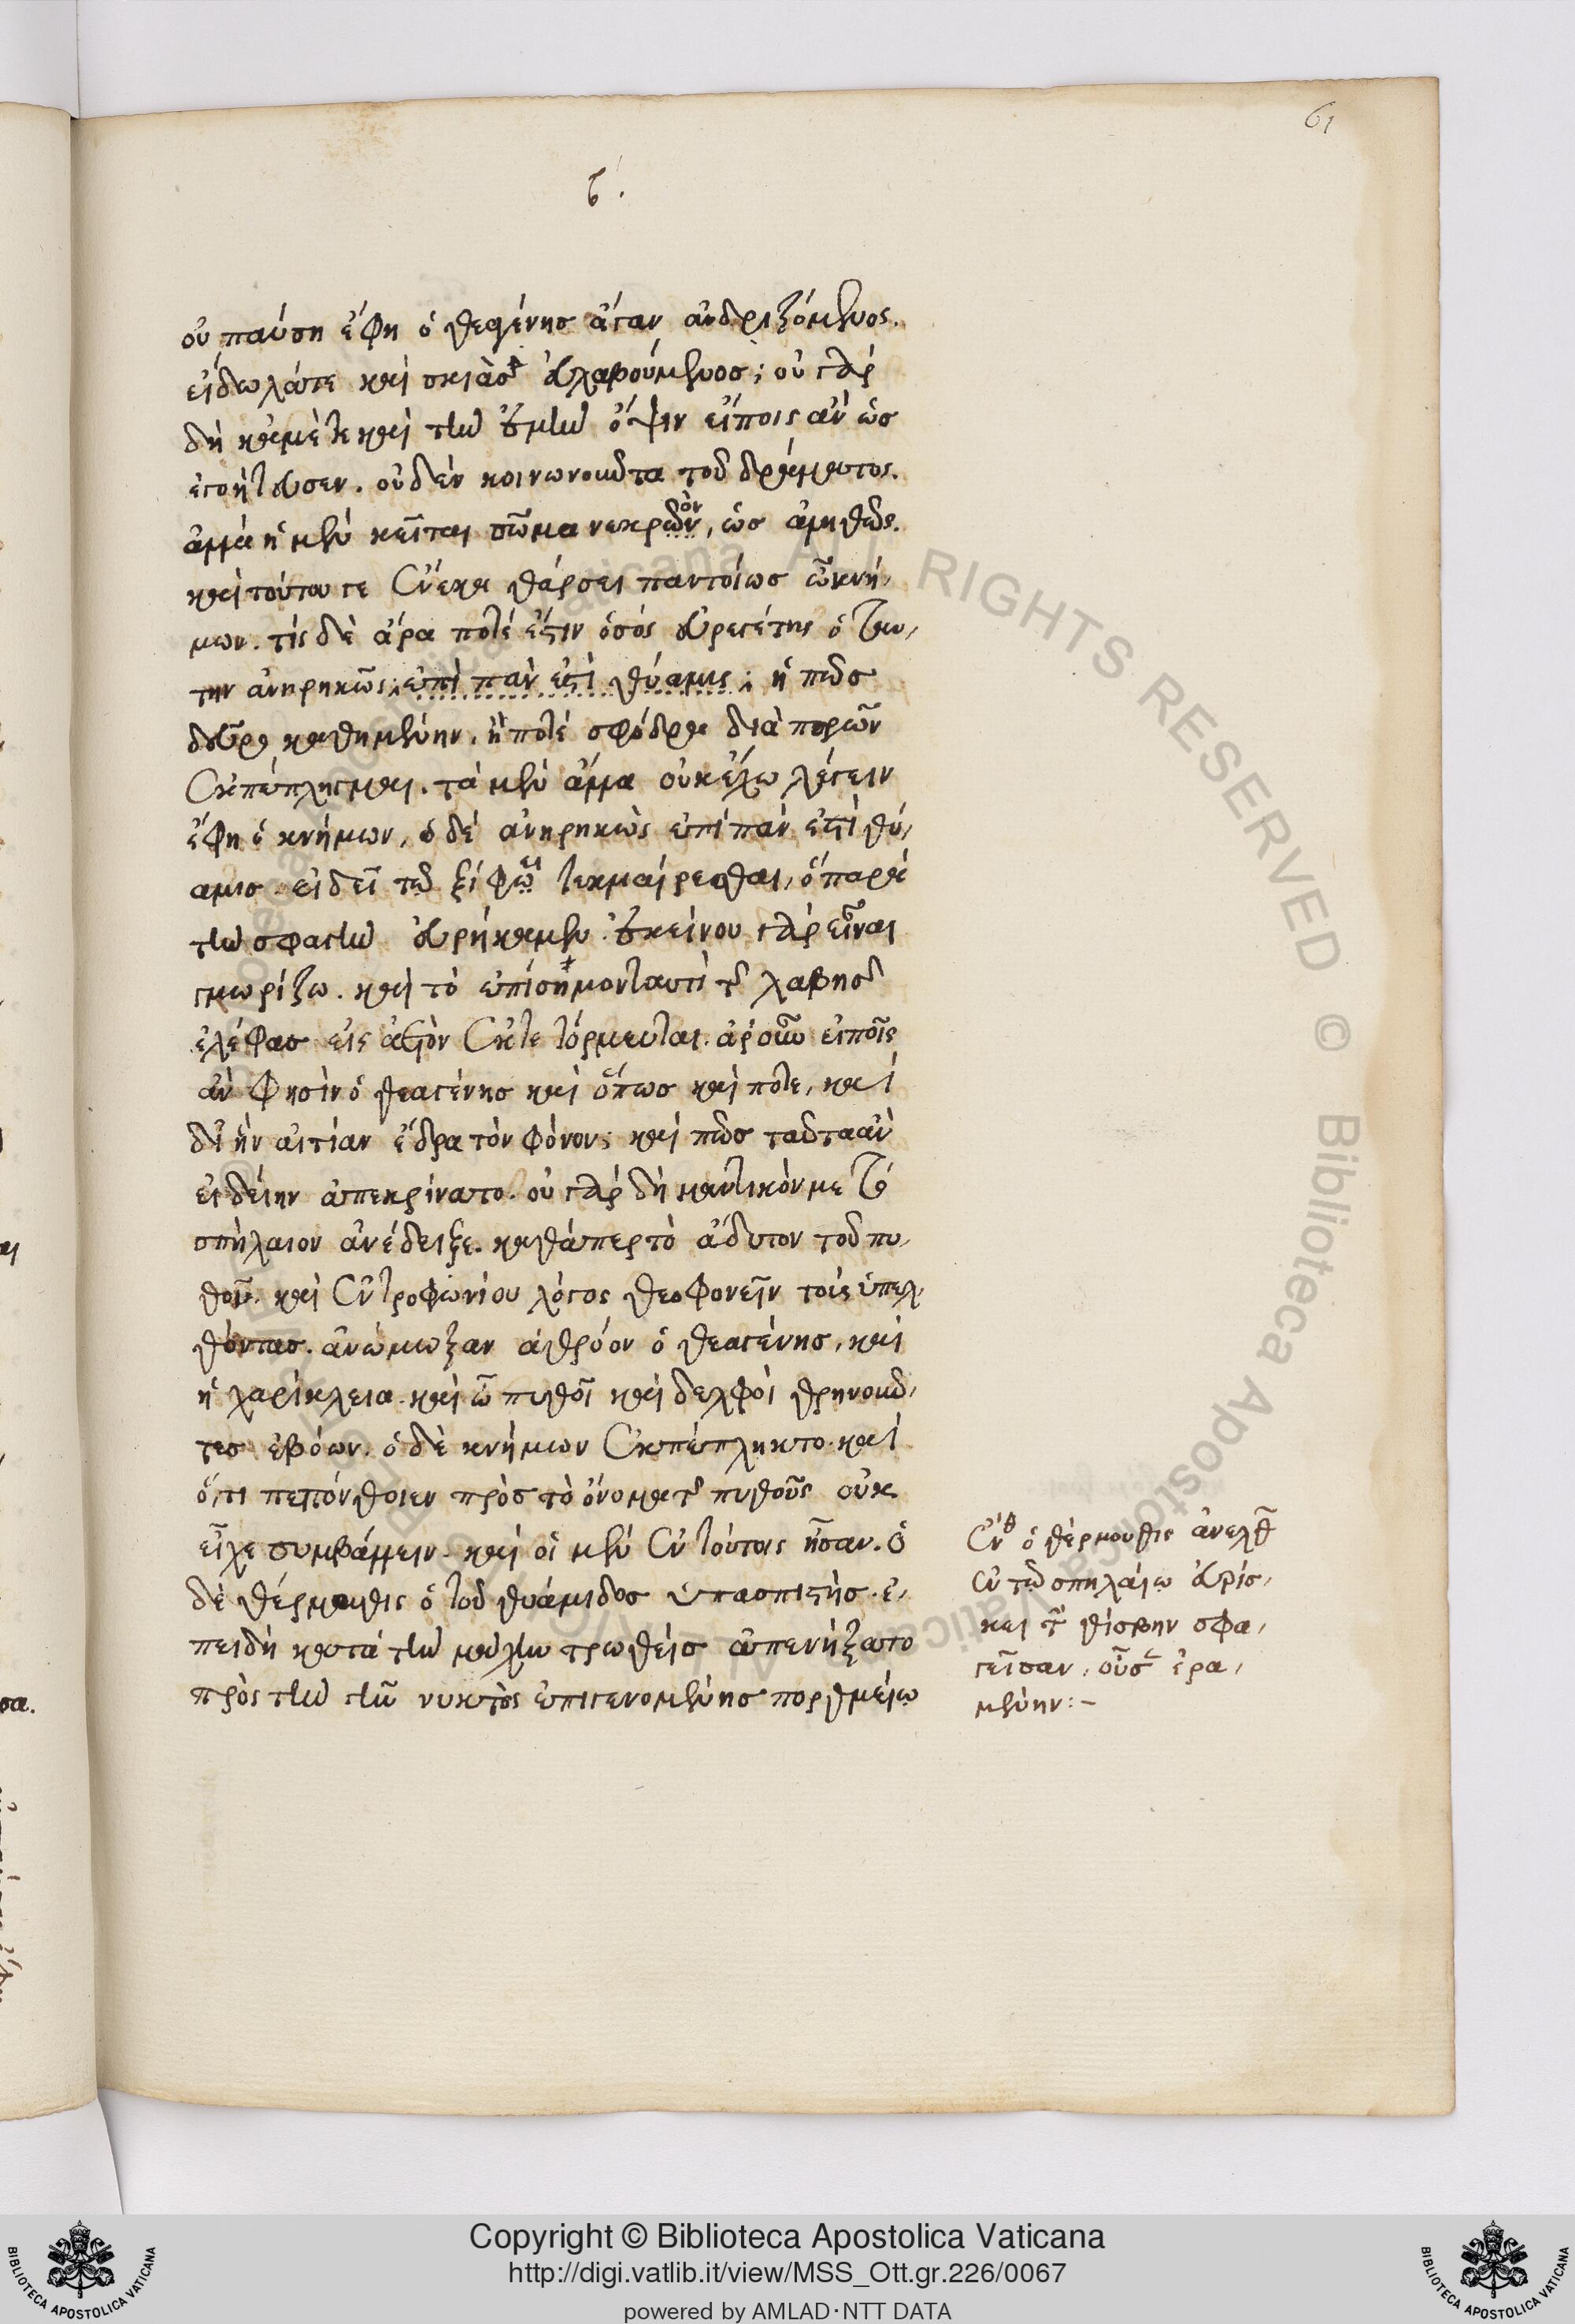 61
β΄.
οὐ παύσῃ ἔφη ὁ θεαγένης ἄγαν ἀνδριζόμενος.
εἴδωλά τε καὶ σκιὰς εὐλαβούμενος; οὐ γὰρ
δὴ κἀμέ τε καὶ τὴν ἐμὴν ὄψιν εἴποις ἂν ὡς
ἐγοήτευσεν. οὐδὲν κοινωνοῦντα τοῦ δράματος.
ἀλλὰ ἡ μὲν κεῖται σῶμα νεκρῶν, ὡς ἀληθῶς.
ὸν
καὶ τούτου γε ἕνεκα θάρσει παντοίως ὦ κνή,
μων. τίς δὲ ἄρα ποτέ ἐστιν ὁ σὸς εὐεργέτης ὁ ταύ,
την ἀνῃρηκῶς; ἐπὶ πᾶν ἐστὶ θύαμις; ἢ πῶς
δεῦρο καθημένην. ἢ ποτέ σφόδρα διαπορῶν
ἐκπέπληγμαι. τὰ μὲν ἄλλα οὐκ ἔχω λέγειν
ἔφη ὁ κνήμων, ὁ δὲ ἀνῃρηκὼς ἐπίπαν ἐστὶ θύ,
αμις εἰ δεῖ τῷ ξίφῳ τεκμαίρεσθαι, ὃ παρὰ
τὴν σφαγὴν εὑρήκαμεν. ἐκείνου γὰρ εἶναι
γνωρίζω. καὶ τὸ ἐπίσημον ταυτὶ τῆς λαβῆς
ἐλέφας εἰς ἀετὸν ἐκτετόρμευται. ἆρ' οὖν εἰποῖς
ἂν φησὶν ὁ θεαγένης καὶ ὅπως καὶ πότε, καὶ
δι' ἣν αἰτίαν ἔδρα τὸν φόνον; καὶ πῶς ταῦτα ἂν
εἰδείην ἀπεκρίνατο. οὐ γὰρ δὴ μαντικόν με τὸ
σπήλαιον ἀνέδειξε. καθάπερ τὸ ἄδυτον τοῦ πυ,
θοῖ. καὶ ἐν τροφωνίου λόγος θεοφονεῖν τοὺς ὑπελ,
θόντας. ἀνώμωξαν ἀθρόον ὁ θεαγένης, καὶ
ἡ χαρίκλεια. καὶ ὦ πυθοῖ καὶ δελφοὶ θρηνοῦν,
τες ἐβόων. ὁ δὲ κνήμων ἐκπέπληκτο. καὶ
ὅ,τι πεπόνθοιεν πρὸς τὸ ὄνομα τῆς πυθοῦς οὐκ
εἶχε συμβάλλειν. καὶ οἱ μὲν ἐν τούτοις ἦσαν. ὁ
δὲ θέρμουθις ὁ τοῦ θυάμιδος ὑπασπιστὴς. ἐ,
πειδὴ κατὰ τὴν μάχην τρωθεὶς ἀπενήξατο
πρὸς τὴν γῆν νυκτὸς ἐπιγενομένης πορθμείῳ
ἔνθ ὁ θέρμουθις ἀνελθ
ἐν τῷ σπηλαίῳ εὑρίσ,
κει τὴν θίσβην σφα,
γεῖσαν, οὗς ἐρα,
μένην:-
Copyright © Biblioteca Apostolica Vaticana
http://digi.vatlib.it/view/MSS_Ott.gr.226/0067
powered by AMLAD·NTT DATA